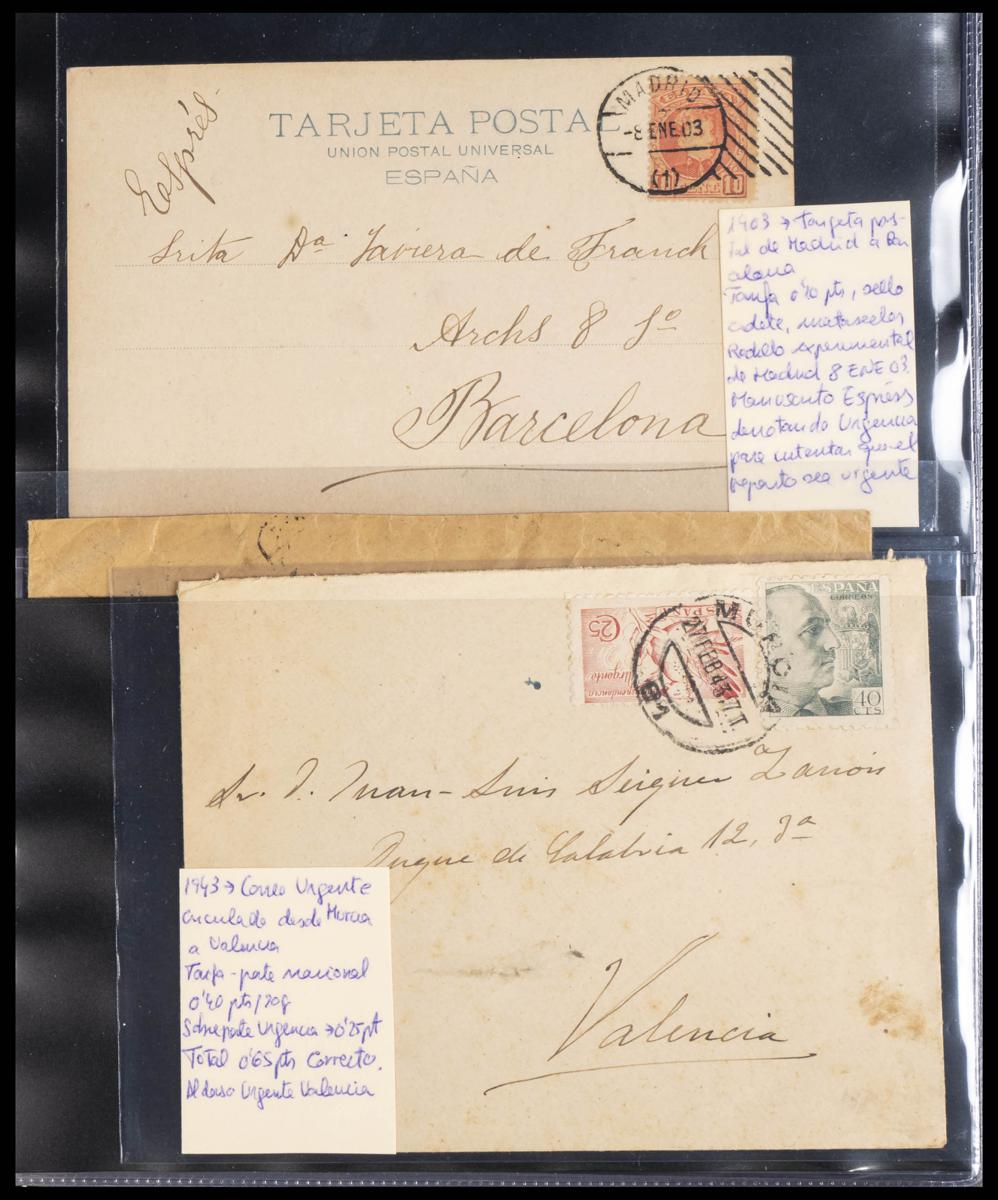 Esprés
TARJETA POSTAL
UNION POSTAL UNIVERSAL
ESPAÑA
MADRID
-8 ENE.03
(1)
10
Srita Dª Javiera de Franch
Archs 8 1º
Barcelona
1903 → Targeta pos-
tal de Madrid a Bar
celona
Tarifa 0'10 pts, sello
cadete, matasellos
Rodillo experimental
de Madrid 8 ENE 03.
Manuscrito Espréss
denotando Urgencia
para intentar que el
reparto sea urgente
ESPAÑA
25
Urgente
Correspondencia
MURCIA
27 FEB 43
ESPAÑA
CORREOS
40
CTS
Sr. D. Juan-Luis
Duque de Calabria 12, 3ª
Valencia
1943 → Correo Urgente
circulado desde Murcia
a Valencia
Tarifa - porte nacional
0'40 pts/20g
Sobreporte Urgencia → 0'25 pt
Total 0'65 pts Correcto.
Al dorso Urgente Valencia